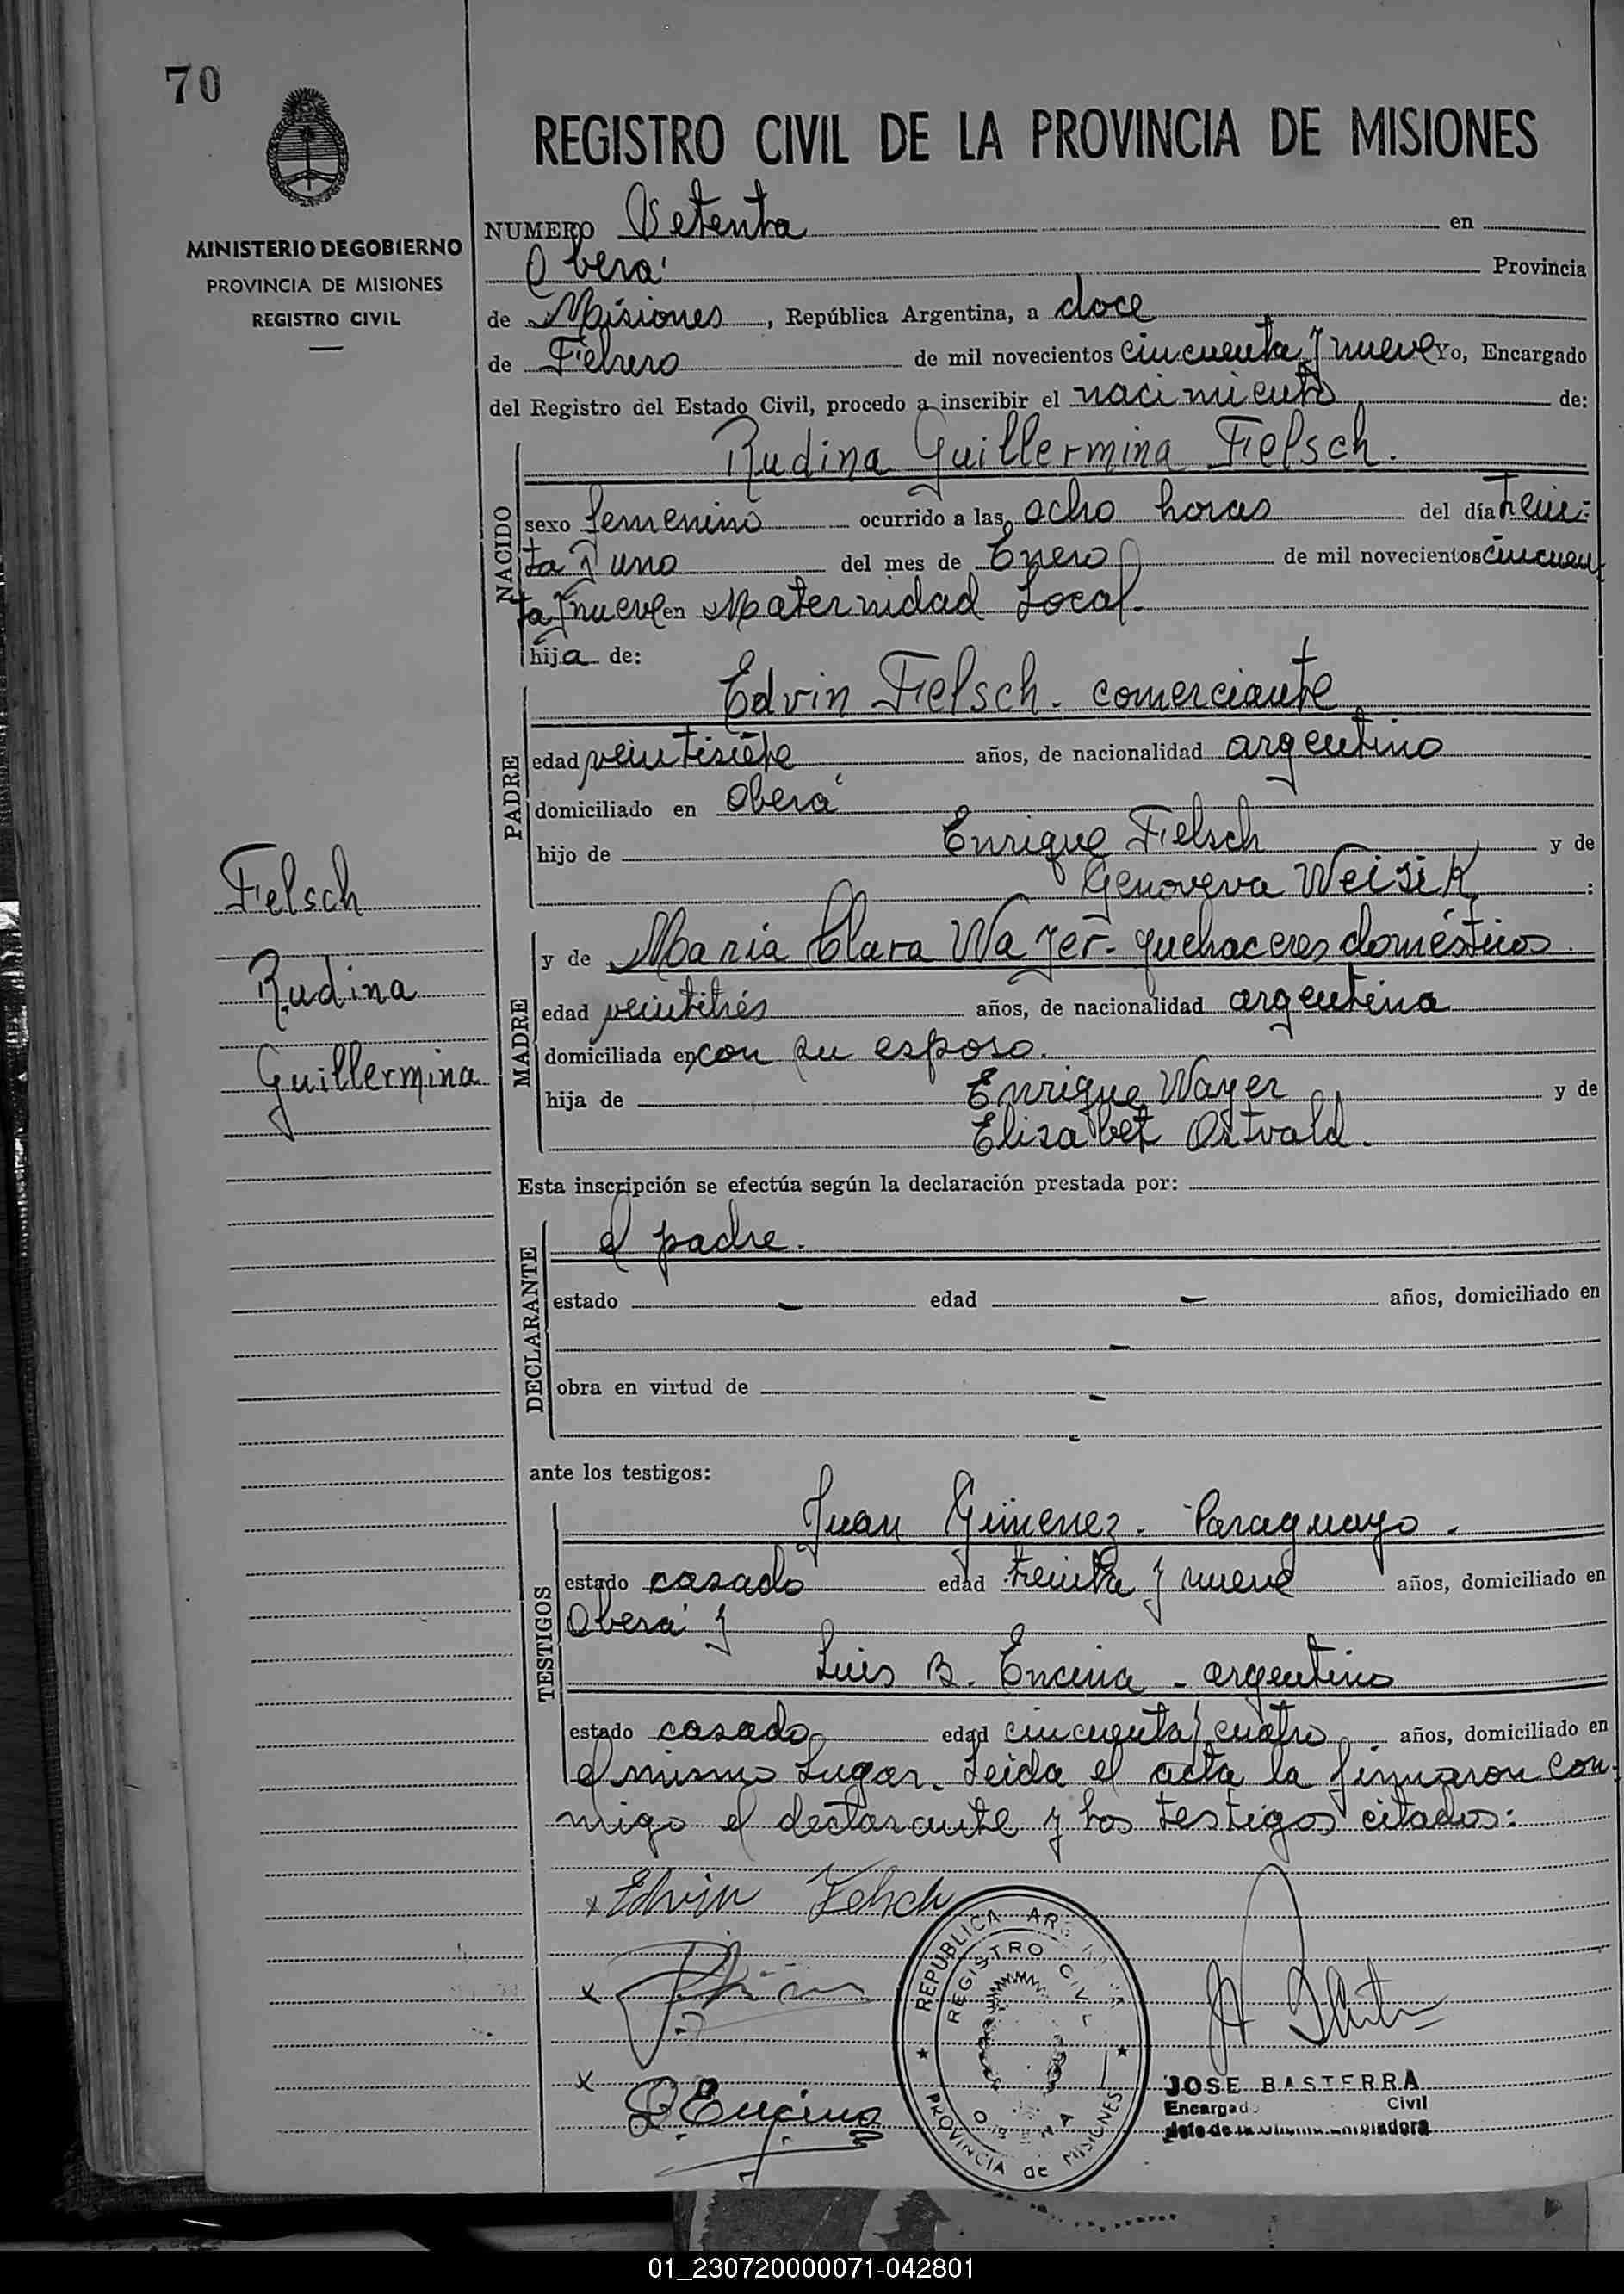 70
REGISTRO CIVIL DE LA PROVINCIA DE MISIONES
MINISTERIO DE GOBIERNO
PROVINCIA DE MISIONES
REGISTRO CIVIL
NUMERO Setenta en
Oberá Provincia
de Misiones, República Argentina, a doce
de Febrero de mil novecientos cincuenta y nueve Yo, Encargado
del Registro del Estado Civil, procedo a inscribir el nacimiento de:
Rudina Guillermina Felsch.
NACIDO
sexo femenino ocurrido a las ocho horas del día trein-
ta y uno del mes de Enero de mil novecientos cincuen
ta y nueve en Maternidad Local.
hija de:
Edvin Felsch. comerciante
PADRE
edad veintisiete años, de nacionalidad argentino
domiciliado en Oberá
hijo de Enrique Felsch y de
Genoveva Weisik :
Felsch
Rudina
Guillermina
y de María Clara Wayer. quehaceres domésticos.
MADRE
edad veintitrés años, de nacionalidad argentina
domiciliada en con su esposo.
hija de Enrique Wayer y de
Elisabet Ostvald.
Esta inscripción se efectúa según la declaración prestada por:
el padre.
DECLARANTE
estado — edad — años, domiciliado en
—
obra en virtud de —
-
ante los testigos:
Juan Gimenez. Paraguayo.
TESTIGOS
estado casado edad treinta y nueve años, domiciliado en
Oberá y
Luis B. Encina - argentino
estado casado edad cincuenta y cuatro años, domiciliado en
el mismo Lugar. Leida el acta la firmaron con-
migo el declarante y los testigos citados:
x Edvin Felsch
x
x
Encina
REPUBLICA AR
REGISTRO CIV
PROVINCIA de MISIONES
JOSE BASTERRA
Encargad Civil
01_230720000071-042801